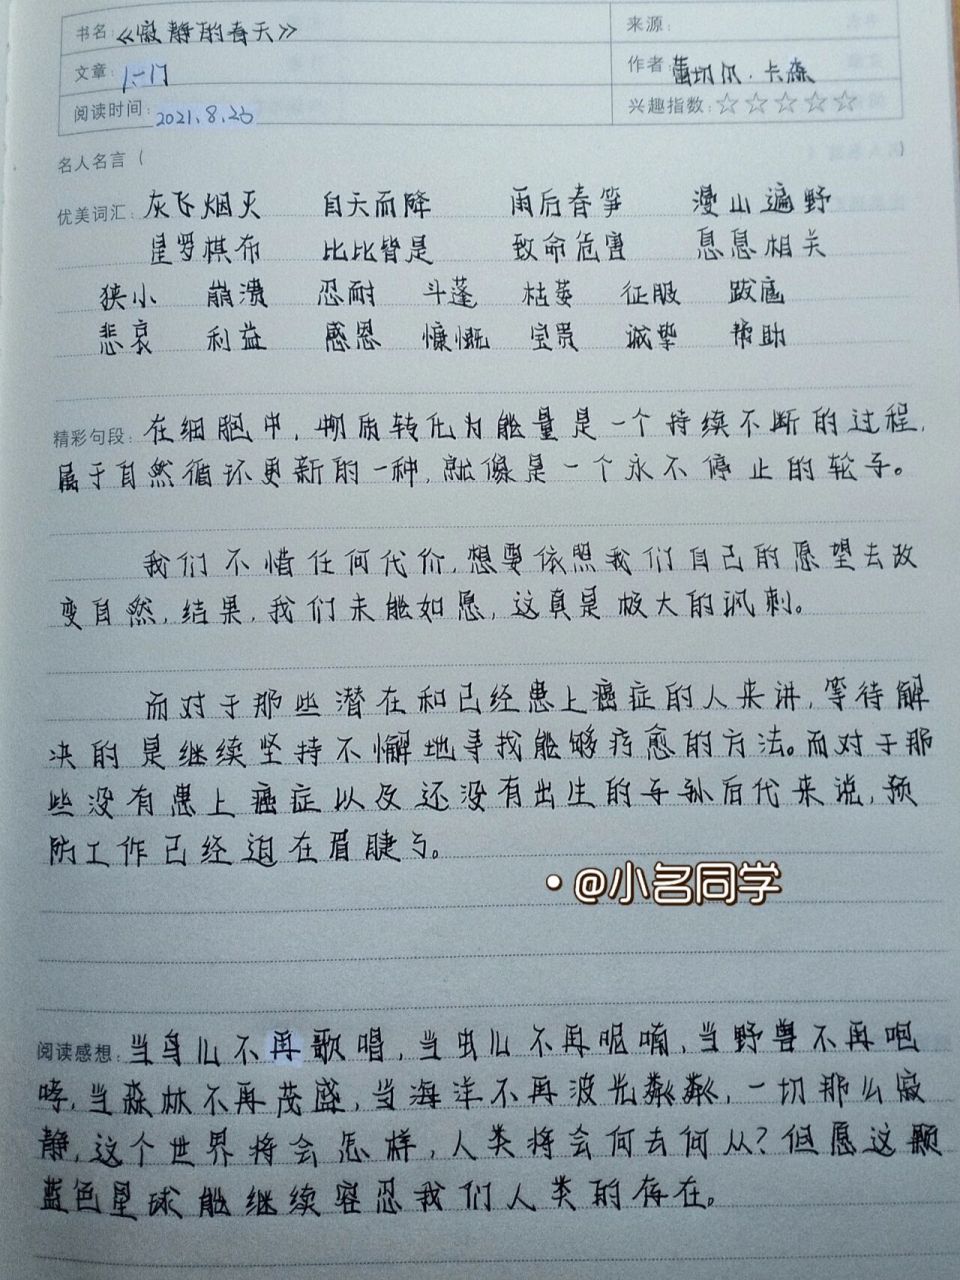 书名：《寂静的春天》 来源：
文章：1-17 作者：蕾切尔·卡森
阅读时间：2021.8.26 兴趣指数：☆☆☆☆☆
名人名言（ ）
优美词汇：灰飞烟灭 自天而降 雨后春笋 漫山遍野
星罗棋布 比比皆是 致命危害 息息相关
狭小 崩溃 忍耐 斗蓬 枯萎 征服 跋扈
悲哀 利益 感恩 慷慨 宝贵 诚挚 帮助
精彩句段：在细胞中，物质转化为能量是一个持续不断的过程，
属于自然循环更新的一种，就像是一个永不停止的轮子。
我们不惜任何代价，想要依照我们自己的愿望去改
变自然，结果，我们未能如愿，这真是极大的讽刺。
而对于那些潜在和已经患上癌症的人来讲，等待解
决的是继续坚持不懈地寻找能够疗愈的方法。而对于那
些没有患上癌症以及还没有出生的子孙后代来说，预
防工作已经迫在眉睫了。
·@小名同学
阅读感想：当鸟儿不再歌唱，当虫儿不再呢喃，当野兽不再咆
哮，当森林不再茂盛，当海洋不再波光粼粼，一切那么寂
静，这个世界将会怎样，人类将会何去何从？但愿这颗
蓝色星球能继续容忍我们人类的存在。